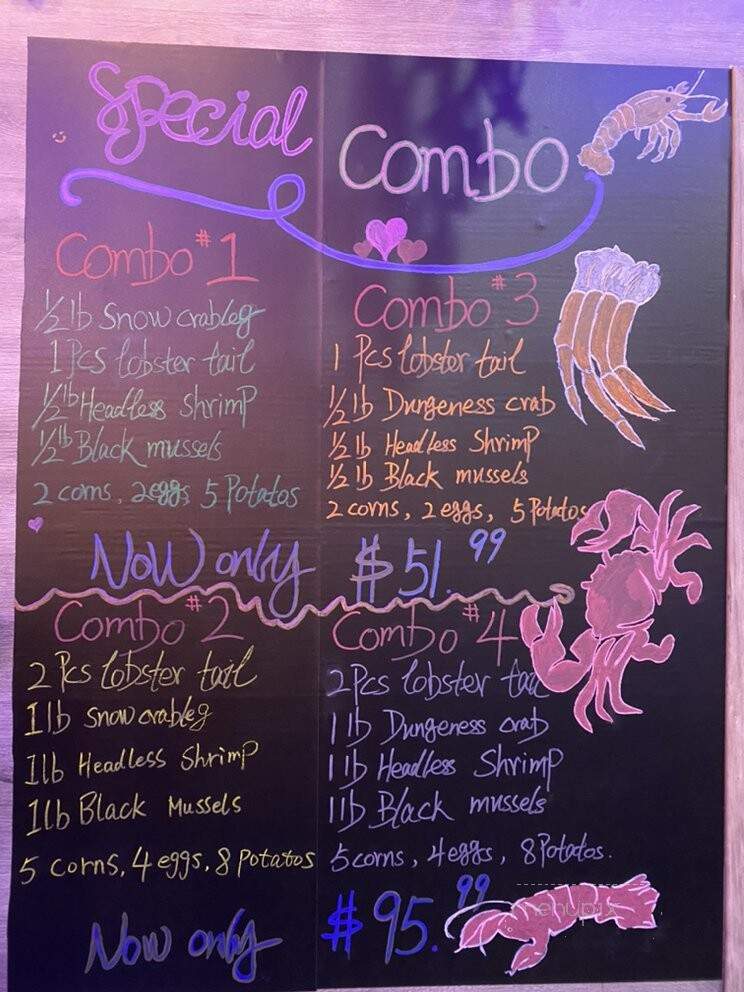 Special Combo
Combo #1
1/2 lb Snow crableg
1 Pcs lobster tail
1/2 lb Headless Shrimp
1/2 lb Black mussels
2 corns, 2eggs, 5 Potatos
Combo #3
1 Pcs lobster tail
1/2 lb Dungeness crab
1/2 lb Headless Shrimp
1/2 lb Black mussels
2 corns, 2 eggs, 5 Potatos
Now only $51.99
Combo #2
2 Pcs lobster tail
1 lb Snow crableg
1lb Headless Shrimp
1lb Black Mussels
5 corns, 4 eggs, 8 Potatos
Combo #4
2 Pcs lobster tail
1 lb Dungeness crab
1 lb Headless Shrimp
1 lb Black mussels
5 corns, 4 eggs, 8 Potatos.
Now only $95.99
menupix